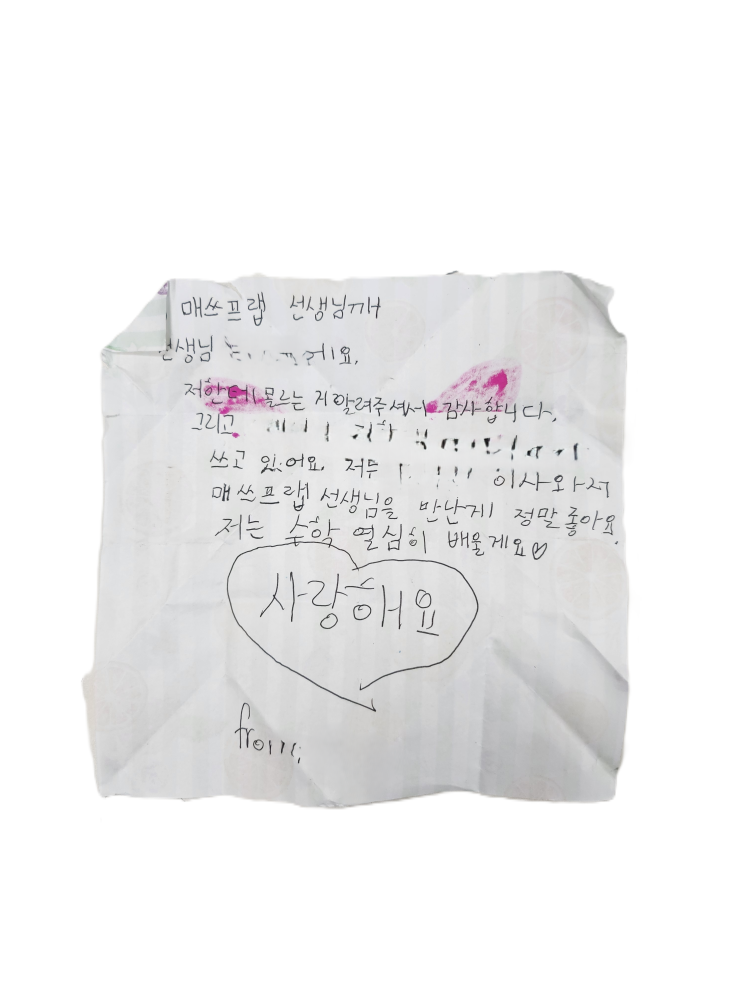 매쓰프랩 선생님께
선생님 에요.
저한테 모르는 거 알려주셔서 감사합니다.
그리고
쓰고 있어요. 저두 이사와서
매쓰프랩 선생님을 만난게 정말 좋아요.
저는 수학 열심히 배울게요♡
사랑해요
from